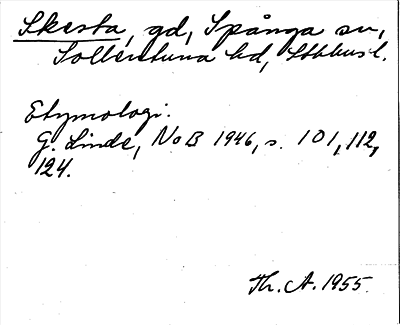 Skesta, gd, Spånga sn,
Sollentuna hd, Sthlms l.
Etymologi:
G. Linde, NoB 1946, s. 101, 112,
124.
Th. A. 1955.